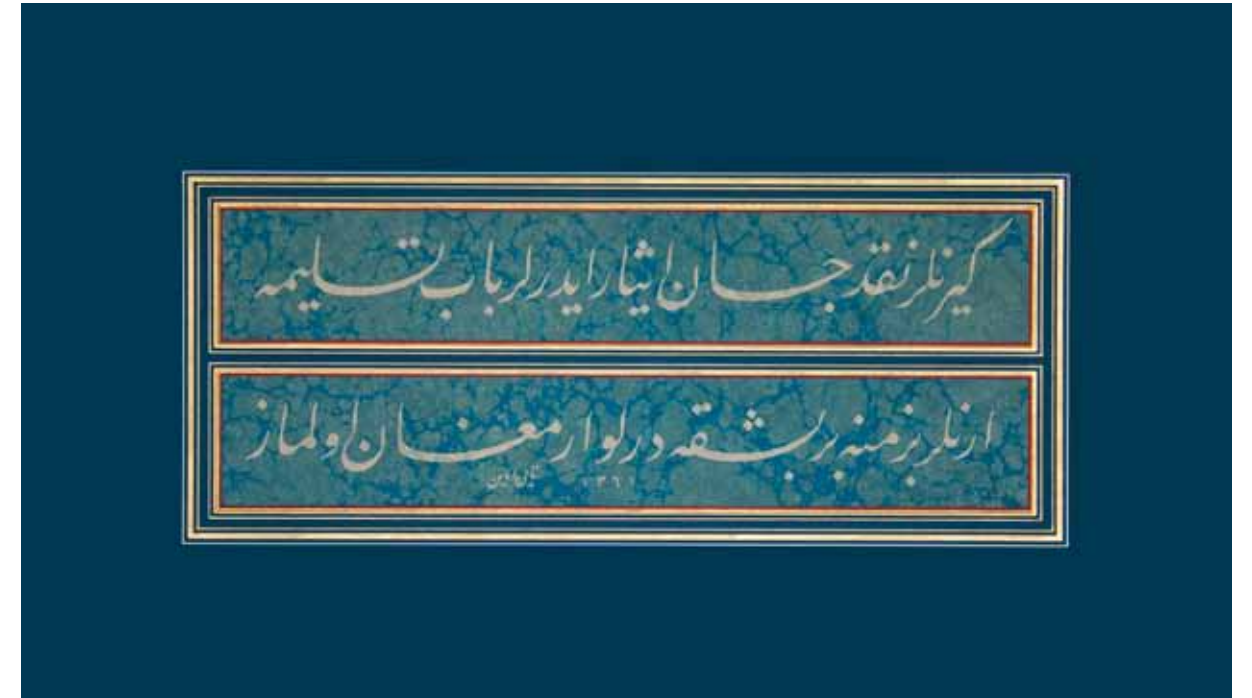 كيرنلر نقد جان ايثار ايدرلر باب تسليمه
ارنلر بزمنه بر بشقه درلو ارمغان اولماز
١٣٦١